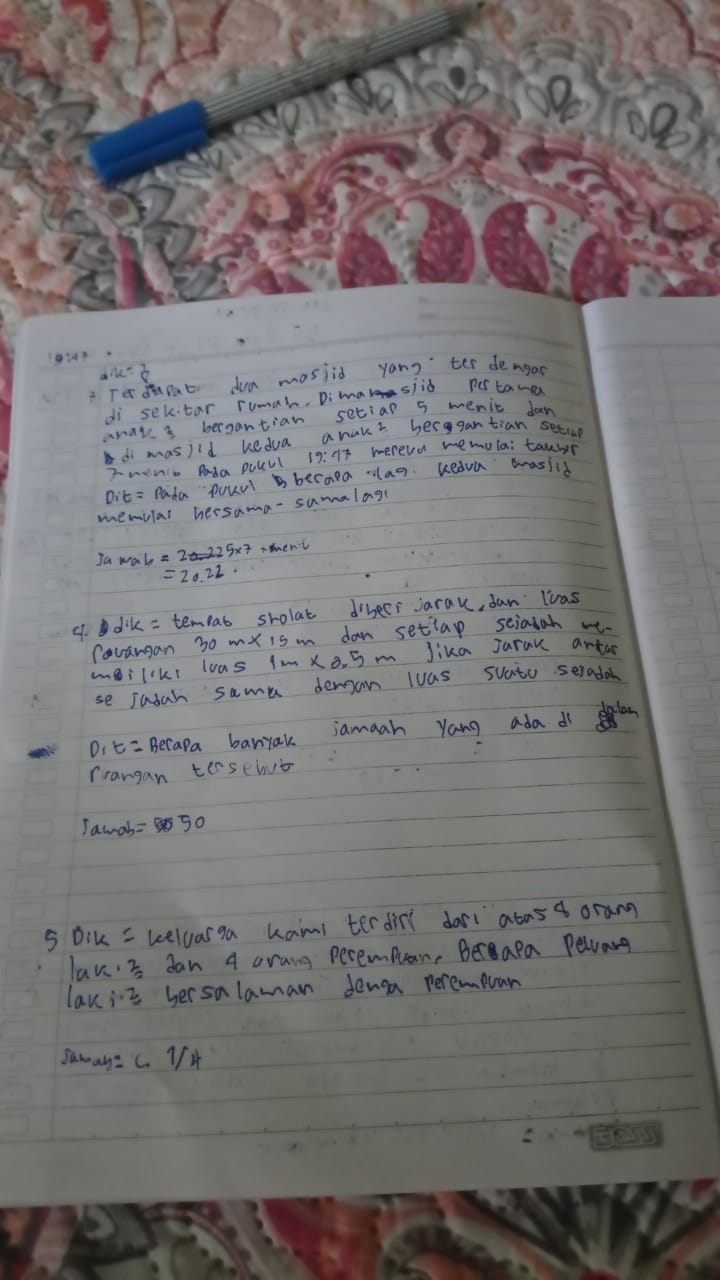 19:47
dik=
3. Terdapat dua masjid yang terdengar
di sekitar rumah. Dimana masjid pertama
anak2 bergantian setiap 5 menit dan
di masjid kedua anak2 bergantian setiap
7 menit Pada pukul 19:47 mereka memulai takbir
Dit = Pada pukul berapa lagi kedua masjid
memulai bersama-sama lagi
Jawab = 5x7 menit
= 20.22.
4. dik = tempat sholat diberi jarak, dan luas
rouangan 30 m x 15 m dan setiap sejadah me-
miliki luas 1m x 0,5 m Jika jarak antar
se jadah sama dengan luas suatu sejadah
Dit = Berapa banyak jamaah yang ada di dalam
rrangan tersebut
Jawab = 50
5 Dik = keluarga kami terdiri dari atas 8 orang
laki2 dan 4 orang perempuan. Berapa peluang
laki2 bersalaman denga perempuan
Jawab = C. 1/4